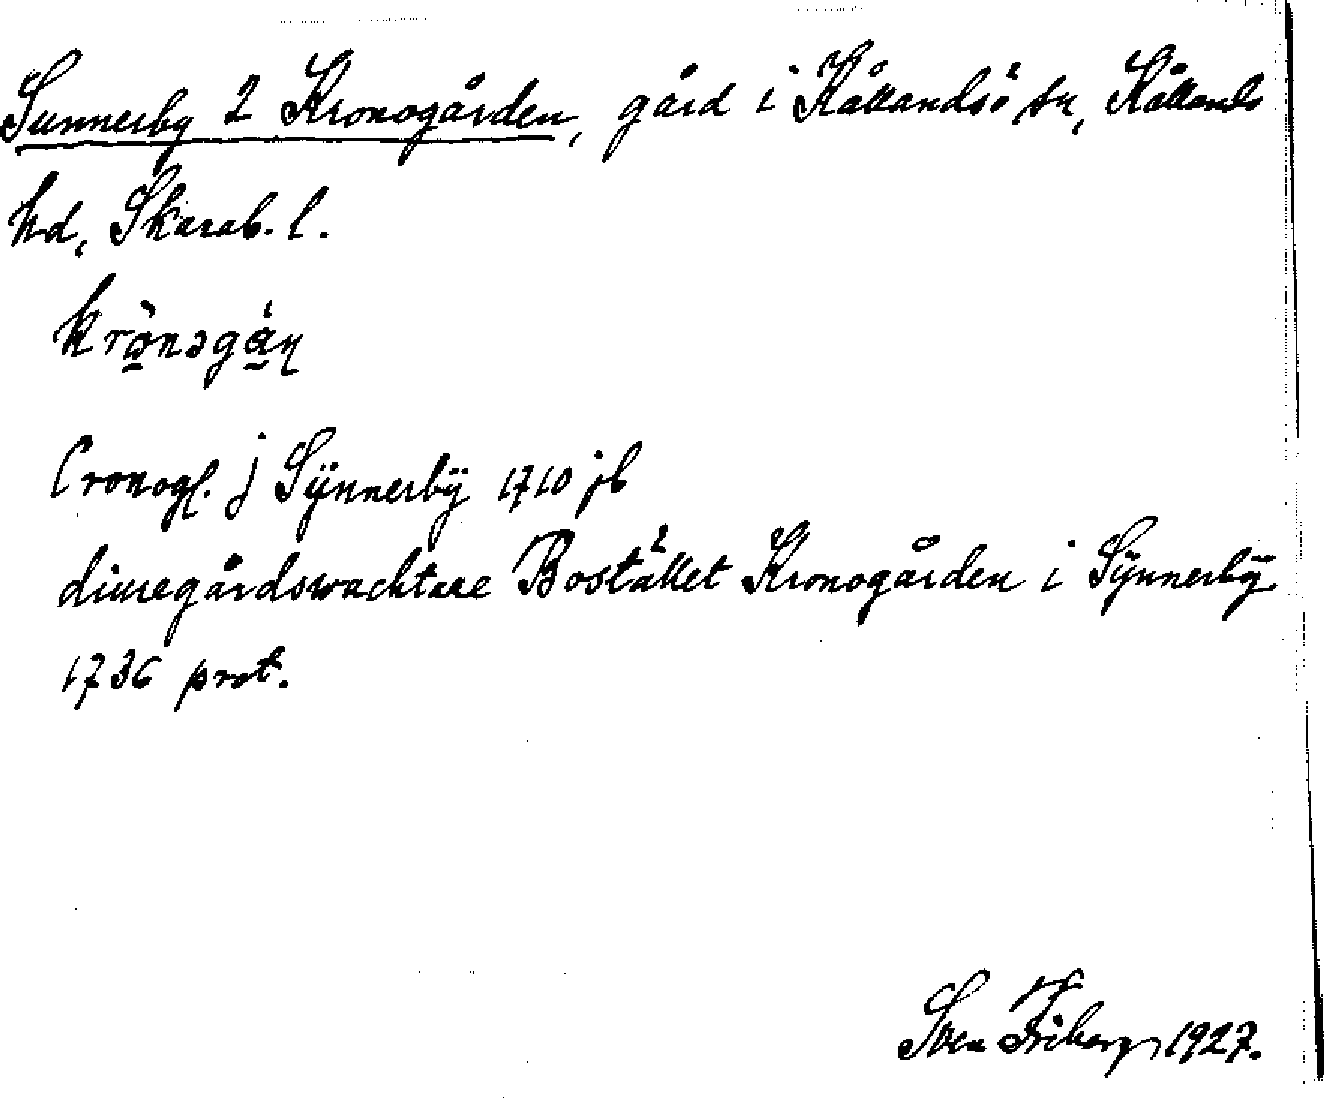 Sunnerby 2 Kronogården, gård i Kållandsö sn, Kållands
hd, Skarab. l.
krònəgáɳ
Cronogl. j Sÿnnerbÿ 1710 jb
diuregårdswachtare Bostället Kronogården i Sÿnnerbÿ
1736 prot.
Sven Friberg 1927.